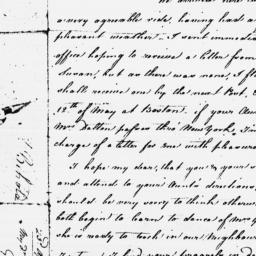 a very agreable ride, having had a
pleasant weather — I went immedia
office hoping to receive a letter from
Susan; but as there was none, I f
shall receive one by the next Post. I
12th of May at Boston. if your Aun
Mrs Dalton passes thro' New York, I'm
charge of a letter for me with pleasure
I hope my dear, that you & your s
and attend to your Aunts directions,
should be very sorry to think otherw
both begin to learn to dance of Mr
she is ready to teach in our Neighbour